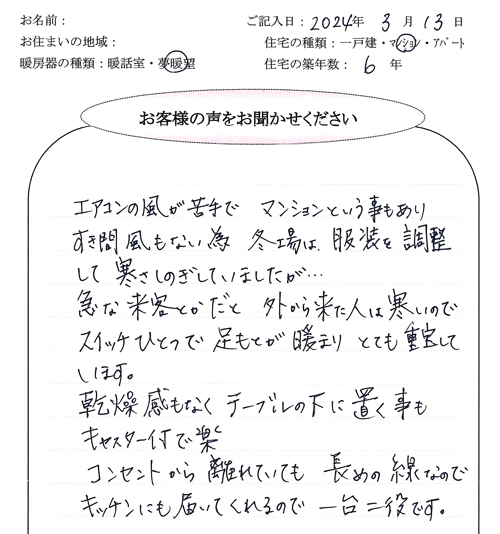 お名前：
ご記入日：2024年 3月13日
お住まいの地域：
住宅の種類：一戸建・マンション・アパート
暖房器の種類：暖話室・夢暖望
住宅の築年数：6 年
お客様の声をお聞かせください
エアコンの風が苦手で マンションという事もあり
すき間風もない為 冬場は、服装を調整
して寒さしのぎしていましたが…
急な来客とかだと 外から来た人は寒いので
スイッチひとつで足もとが暖まり とても重宝して
います。
乾燥感もなく テーブルの下に置く事も
キャスター付で楽
コンセントから離れていても 長めの線なので
キッチンにも届いてくれるので 一台二役です。